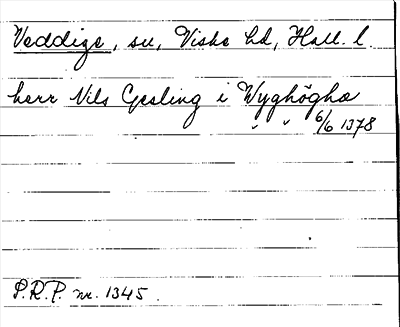 Veddige, sn, Viske hd, Hall. l.
herr Nils Gesling i Wyghögha
" " 6/6 1378
P.R.P. nr. 1345.